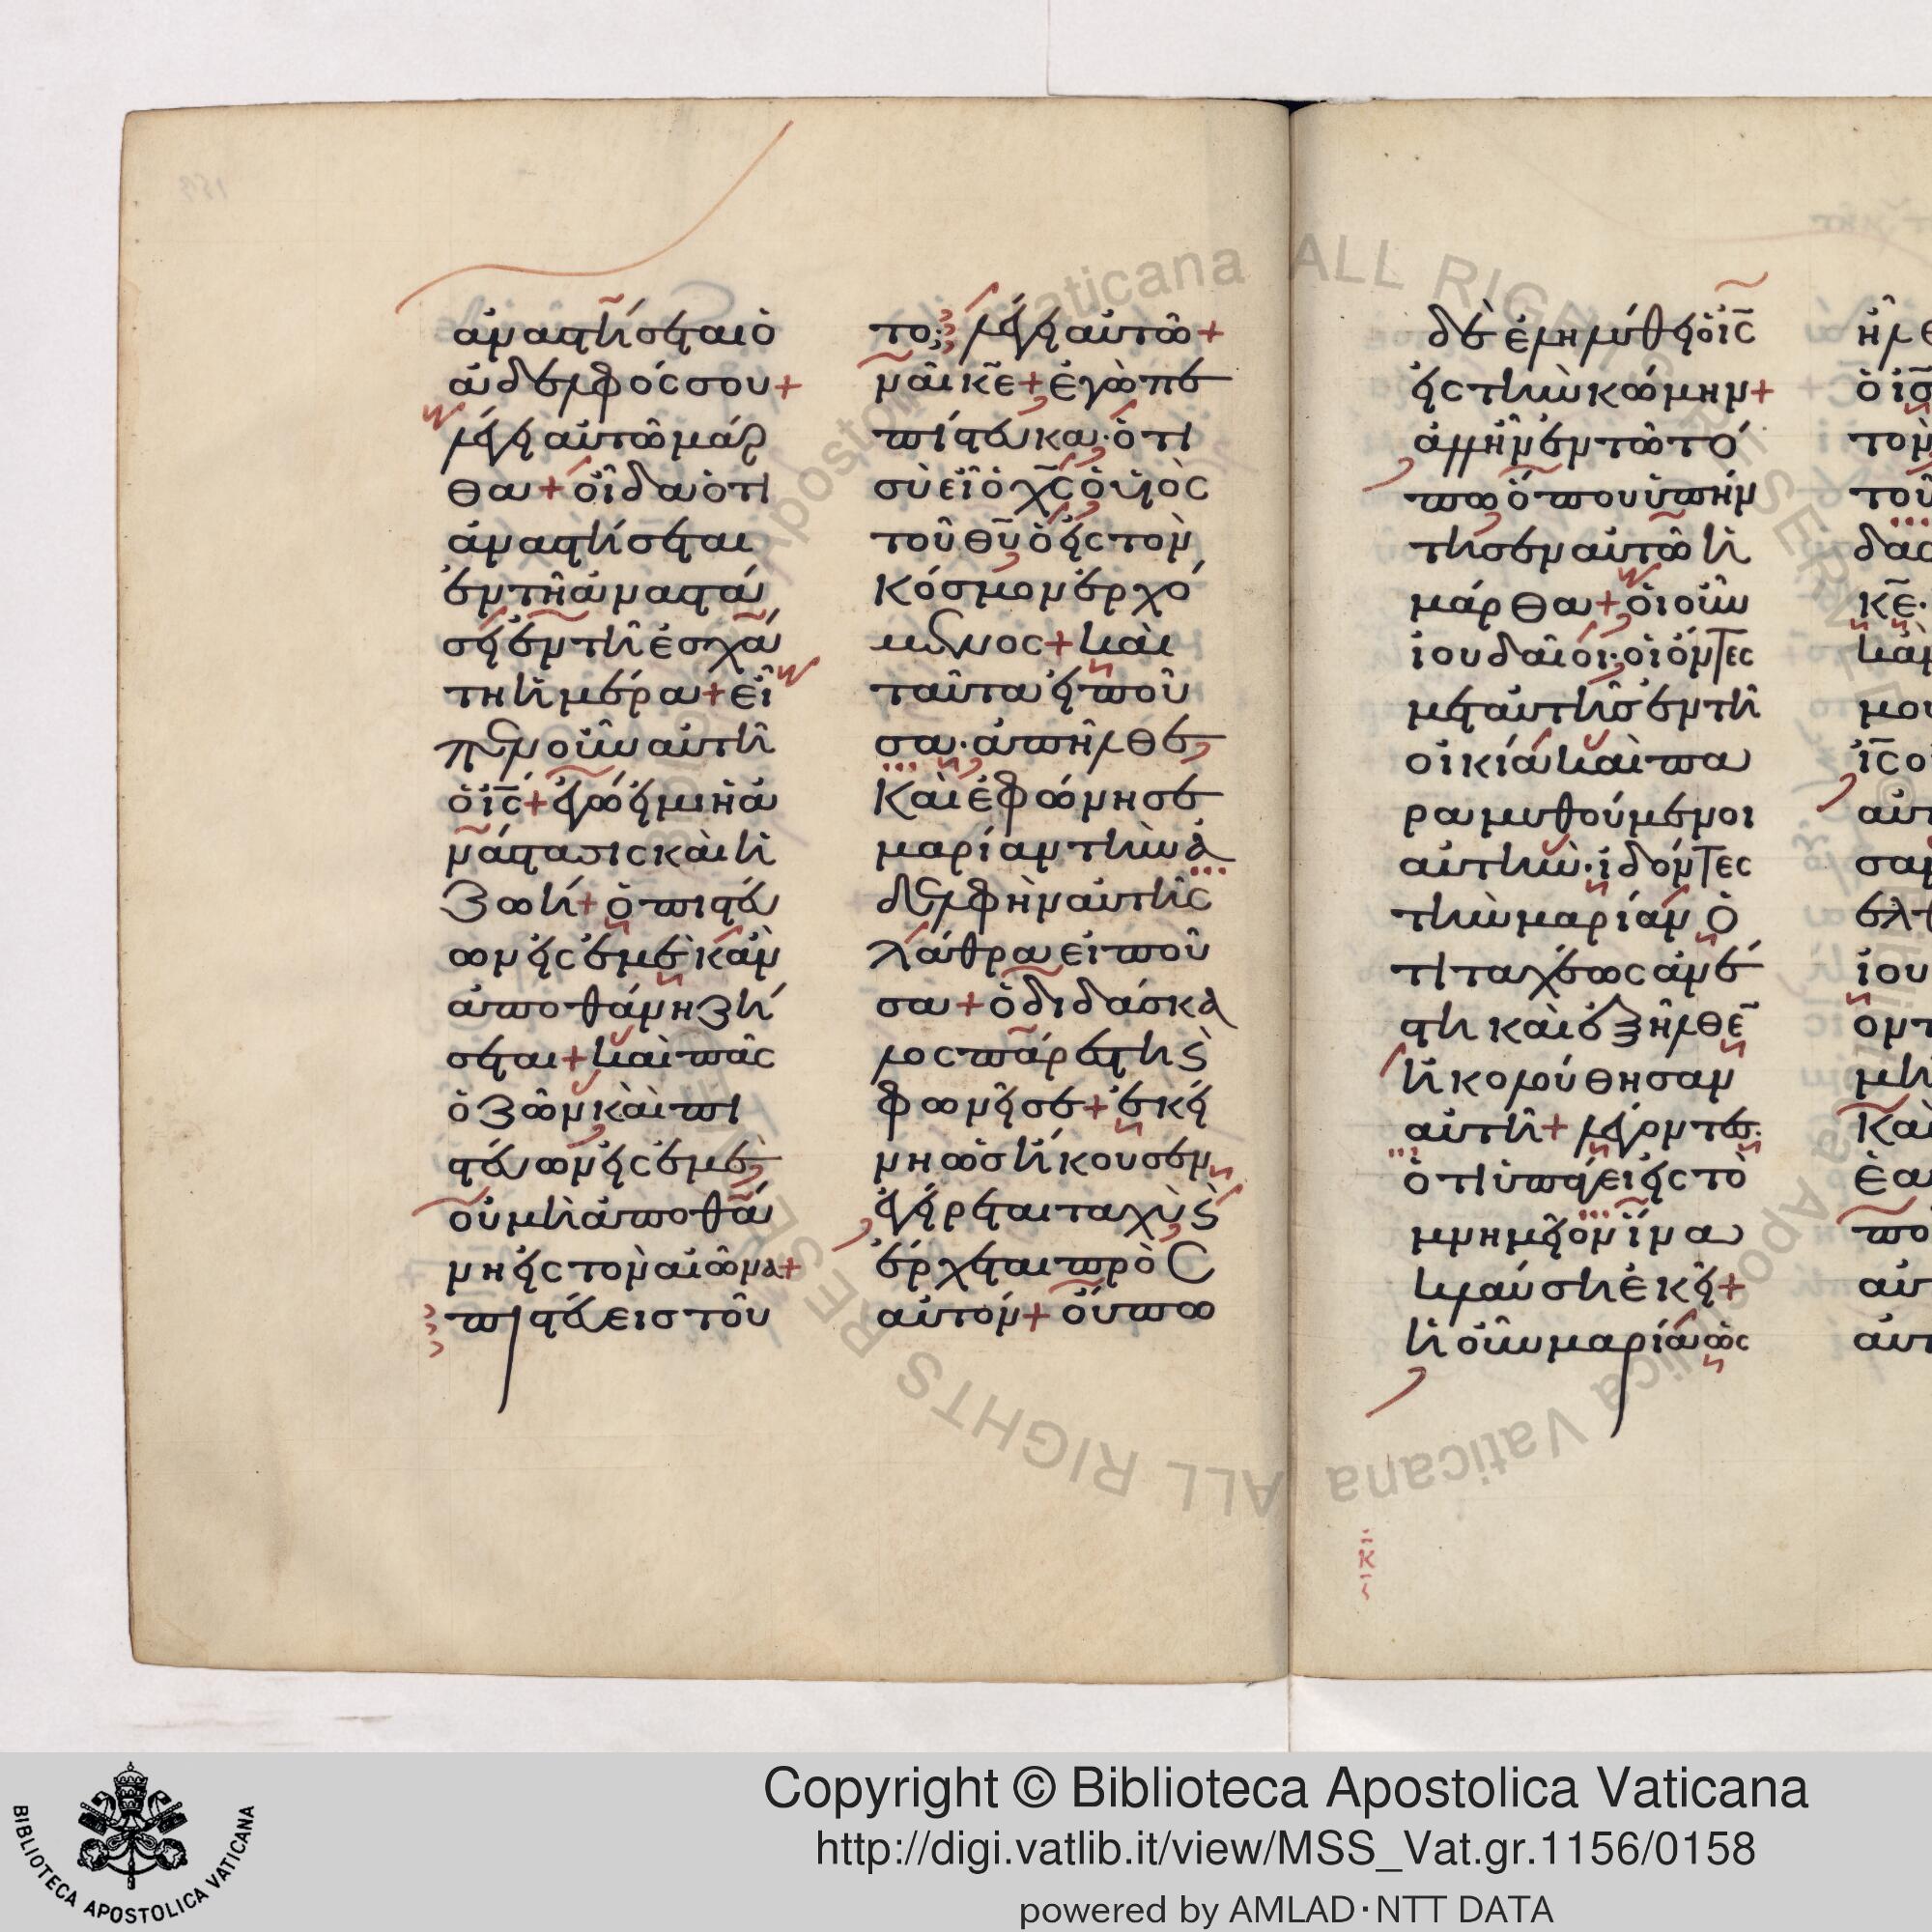 ἀναστήσεται ὁ
ἀδελφός σου+
λέγει αὐτῶ μάρ
θα+ οἶδα ὅτι
ἀναστήσεται
ἐν τῆ ἀναστά
σει ἐν τῆ ἐσχά
τη ἡμέρα+ εἶ
πεν οὖν αὐτῆ
ὁ ἰς+ ἐγώ εἰμι ἡ ἀ
νάστασις καὶ ἡ
ζωή+ ὁ πιστεύ
ων εἰς ἐμὲ κἂν
ἀποθάνη ζή
σεται+ καὶ πᾶς
ὁ ζῶν καὶ πι
στεύων εἰς ἐμὲ
οὐ μὴ ἀποθά
νη εἰς τὸν αἰῶνα+
πιστεύεις τοῦ
το; λέγει αὐτῶ+
ναὶ κε+ ἐγὼ πε
πίστευκα· ὅτι
σὺ εἶ ὁ χς ὁ υἱὸς
τοῦ θυ ὁ εἰς τὸν
κόσμον ἐρχό
μενος+ καὶ
ταῦτα εἰποῦ
σα· ἀπῆλθε
καὶ ἐφώνησε
μαρίαν τὴν ἀ
δελφὴν αὐτῆς
λάθρα εἰποῦ
σα+ ὁ διδάσκα
λος πάρεστι καὶ
φωνεῖ σε+ ἐκεί
νη ὡς ἤκουσεν
ἐγείρεται ταχὺ καὶ
ἔρχεται πρὸς
αὐτόν+ οὔπω
δὲ ἐληλύθει ὁ ἰς
εἰς τὴν κώμην+
ἀλλ' ἦν ἐν τῶ τό
πω ὅπου ὑπήν
τησεν αὐτῶ ἡ
μάρθα+ οἱ οὖν
ἰουδαῖοι· οἱ ὄντες
μετ' αὐτῆς ἐν τῆ
οἰκία καὶ πα
ραμυθούμενοι
αὐτὴν· ἰδόντες
τὴν μαρίαν ὅ
τι ταχέως ἀνέ
στη καὶ ἐξῆλθε
ἠκολούθησαν
αὐτῆ+ λέγοντες·
ὅτι ὑπάγει εἰς τὸ
μνημεῖον ἵνα
κλαύση ἐκεῖ+
ἡ οὖν μαρία ὡς
κ
Copyright © Biblioteca Apostolica Vaticana
http://digi.vatlib.it/view/MSS_Vat.gr.1156/0158
powered by AMLAD·NTT DATA
BIBLIOTECA APOSTOLICA VATICANA